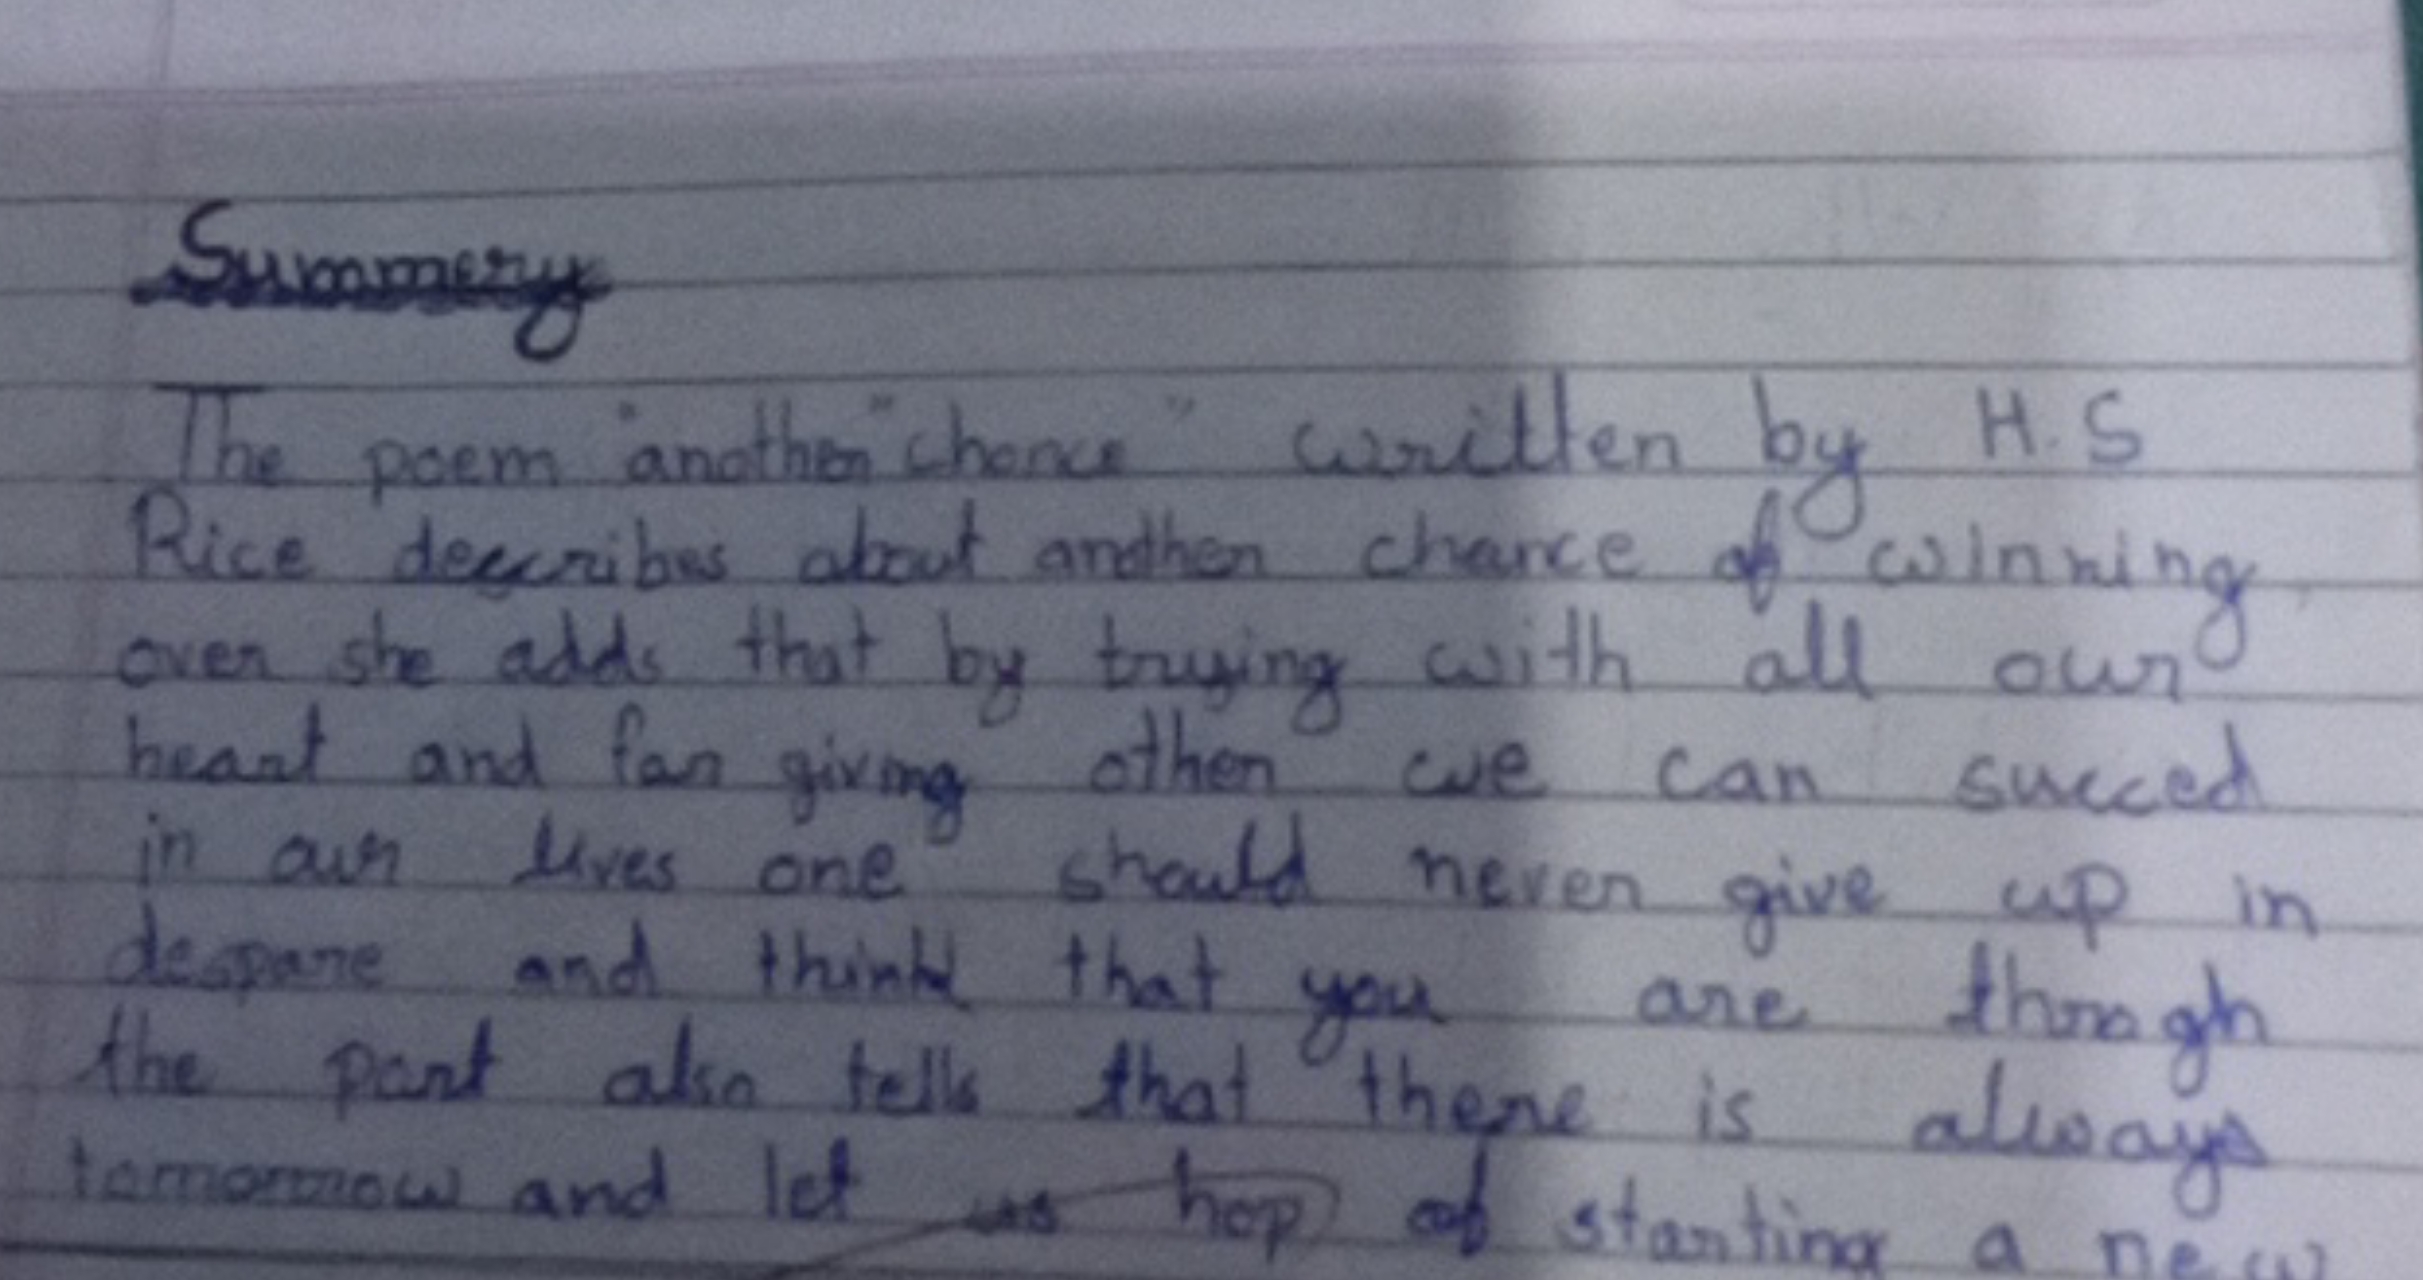 Summery
The poem "another" chance" written by H.S
Rice describes about another chance of winning
over she adds that by trying with all our
heart and for giving other we can succed
in our lives one should never give up in
despare and think that you are throgh
the part also tells that there is always
tomorrow and let us hop of starting a new